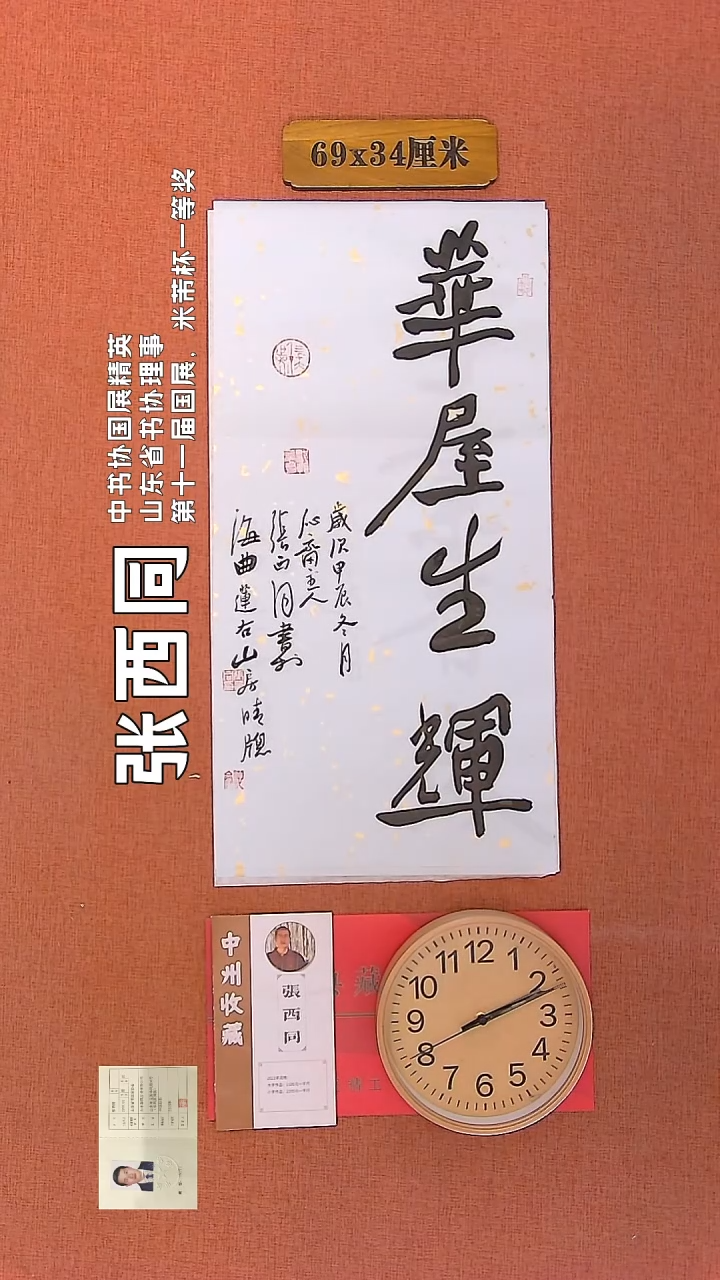 69x34厘米
華屋生輝
歲次甲辰冬月
心齋主人
張西同書於
海曲蓮右山房晴牕
张西同
中书协国展精英
山东省书协理事
第十一届国展、米芾杯一等奖
中州收藏
張西同
藏
12
1
2
3
4
5
6
7
8
9
10
11